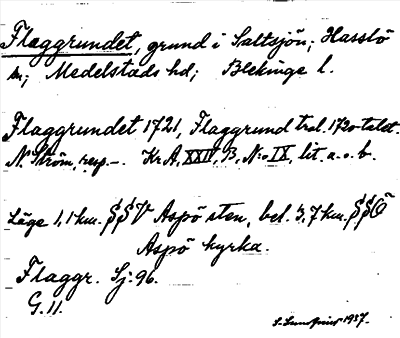 Flaggrundet, grund i Saltsjön; Hasslö
sn; Medelstads hd; Blekinge l.
Flaggrundet 1721, Flaggrund trol. 1720-talet.
N. Ström, resp.-. KrA, XXIV, B, N:o IX, lit. a. o. b.
Läge 1,1 km. SSV Aspö sten, bel. 3,7 km. SSÖ
Aspö kyrka.
Flaggr. Sj: 96.
G. 11.
1937.